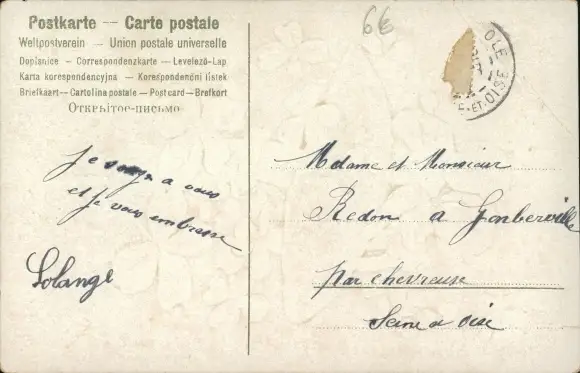 Postkarte — Carte postale
Weltpostverein — Union postale universelle
Dopisnice — Correspondenzkarte — Levelező-Lap
Karta korespondencyjna — Korespondenční lístek
Briefkaart — Cartolina postale — Postcard — Brefkort
Открытое-письмо
6€
OLE
ET-OISE
Je songe a vous
et je vous embrasse
Solange
Madame et Monsieur
Redon a Gonberville
par chevreuse
Seine a oise